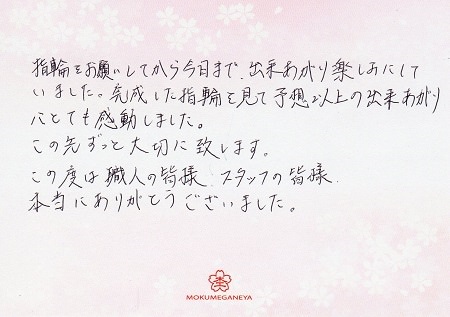 指輪をお願いしてから今日まで、出来あがり楽しみにして
いました。完成した指輪を見て予想以上の出来あがり
にとても感動しました。
この先ずっと大切に致します。
この度は職人の皆様、スタッフの皆様、
本当にありがとうございました。
MOKUMEGANEYA